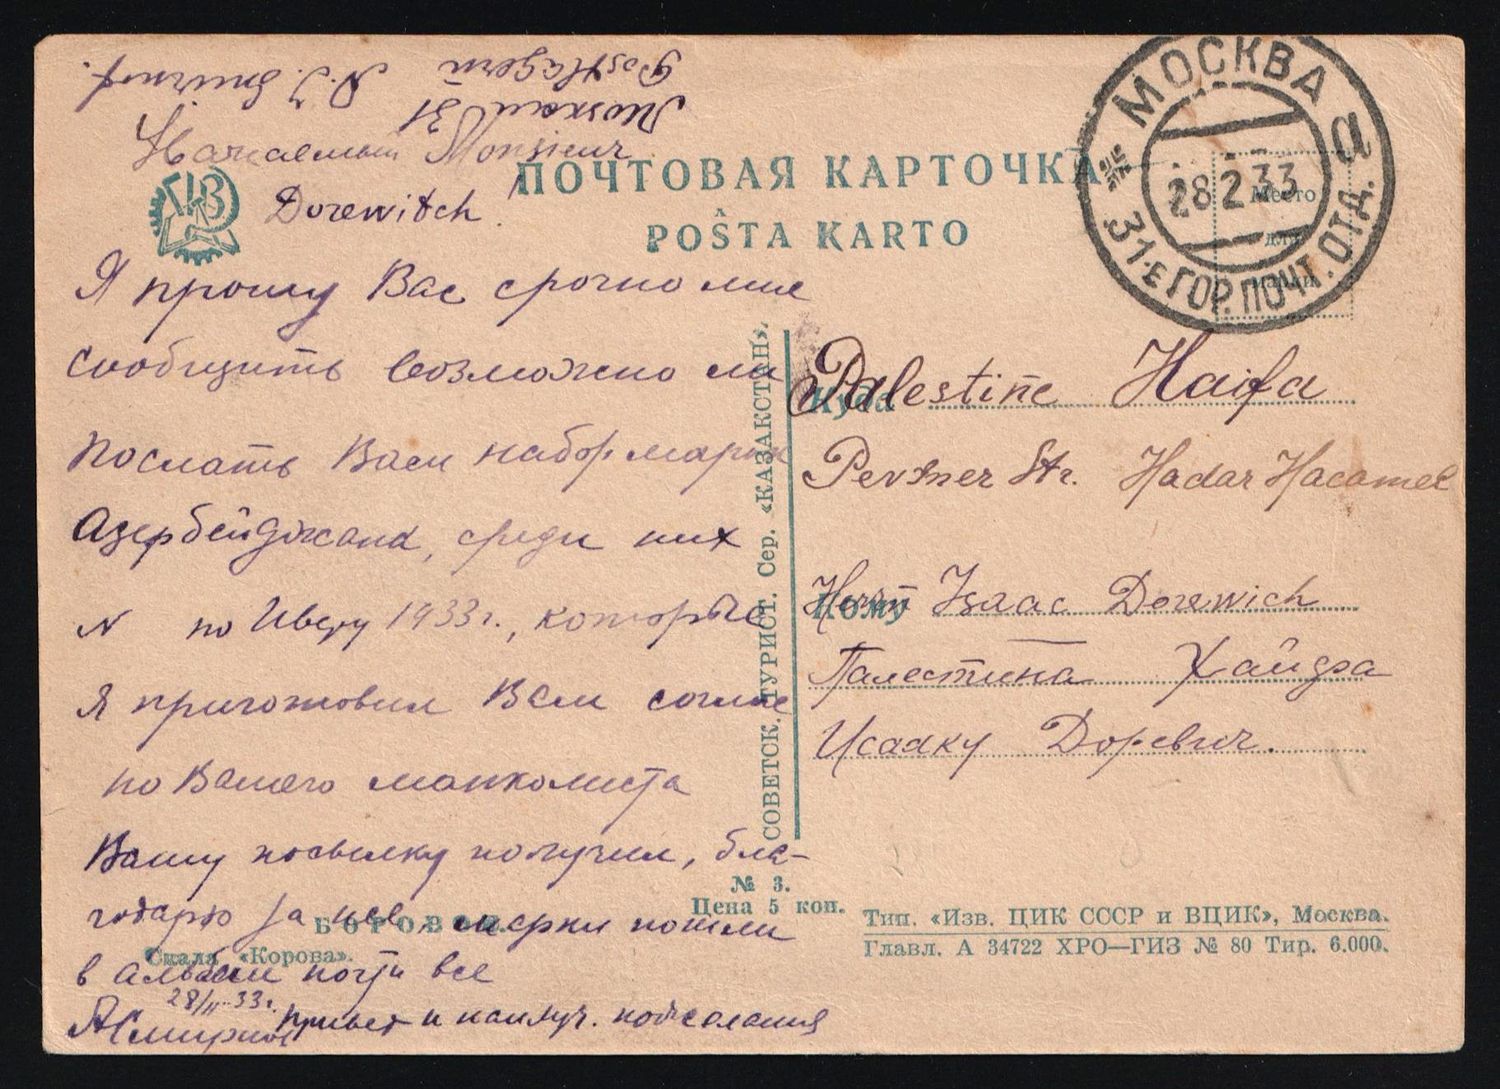 Moskau 31
Postlagernd N. I. Smirnof.
Уважаемый Monsieur
Dorewitch!
Я прошу Вас срочно мне
сообщить возможно ли
послать Вам набор марок
Азербейджана, среди них
N по Иверу 1933г., которые
я приготовил Вам соглас
но Вашего манколиста
Вашу посылку получил, бла-
годарю за нее, марки пошли
в альбом почти все
28/II-33г.
АСмирнов Привет и наилуч. пожелания
ГИЗ
ПОЧТОВАЯ КАРТОЧКА
POŜTA KARTO
МОСКВА
а
28 2 33
31-е ГОР. ПОЧТ. ОТД.
Место
для
марки
СОВЕТСК. ТУРИСТ. Сер. «КАЗАКСТАН».
Куда Palestine Haifa
Pevsner Str. Hadar Hacamel
Кому Herrn Isaac Dorewich
Палестина Хайфа
Исааку Доревич.
№ 3.
Цена 5 коп.
БОРОВОЕ.
Скала «Корова».
Тип. «Изв. ЦИК СССР и ВЦИК», Москва.
Главл. А 34722 ХРО—ГИЗ № 80 Тир. 6.000.